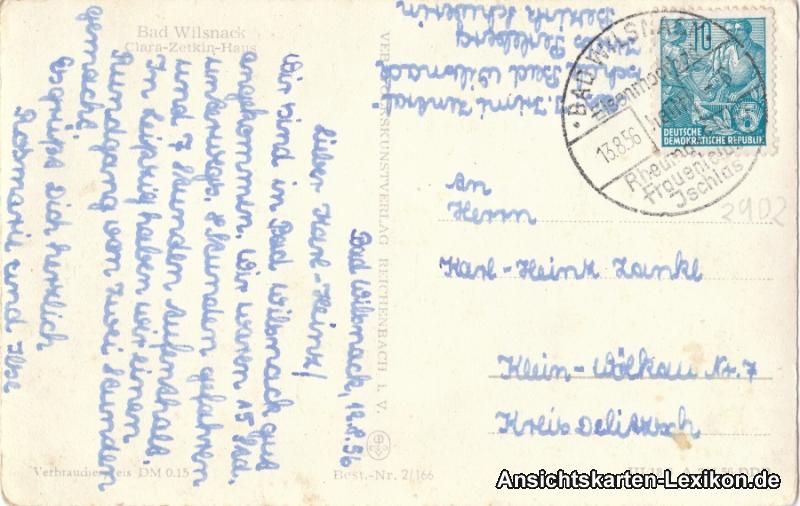 Bad Wilsnack
Clara-Zetkin-Haus
Bad Wilsnack, 12.8.56
Lieber Karl-Heinz!
Wir sind in Bad Wilsnack gut
angekommen. Wir waren 15 Std.
unterwegs. 8 Stunden gefahren
und 7 Stunden Aufenthalt.
In Leipzig haben wir einen
Rundgang von zwei Stunden
gemacht.
Es grüßt Dich herzlich
Rosmarie und Ilse
VERLAG REICHENBACH I. V.
Verbraucherpreis DM 0.15
Best.-Nr. 2/166
Bad Wilsnack
Bezirk Schwerin
BAD WILSNACK
Eisenmoorbad
13.8.56
Rheuma
Frauenleid
Ischias
10
5
DEUTSCHE
DEMOKRATISCHE REPUBLIK
2902
An
Herrn
Karl-Heinz Zankl
Klein-Wölkau Nr. 7
Kreis Delitzsch
Ansichtskarten-Lexikon.de